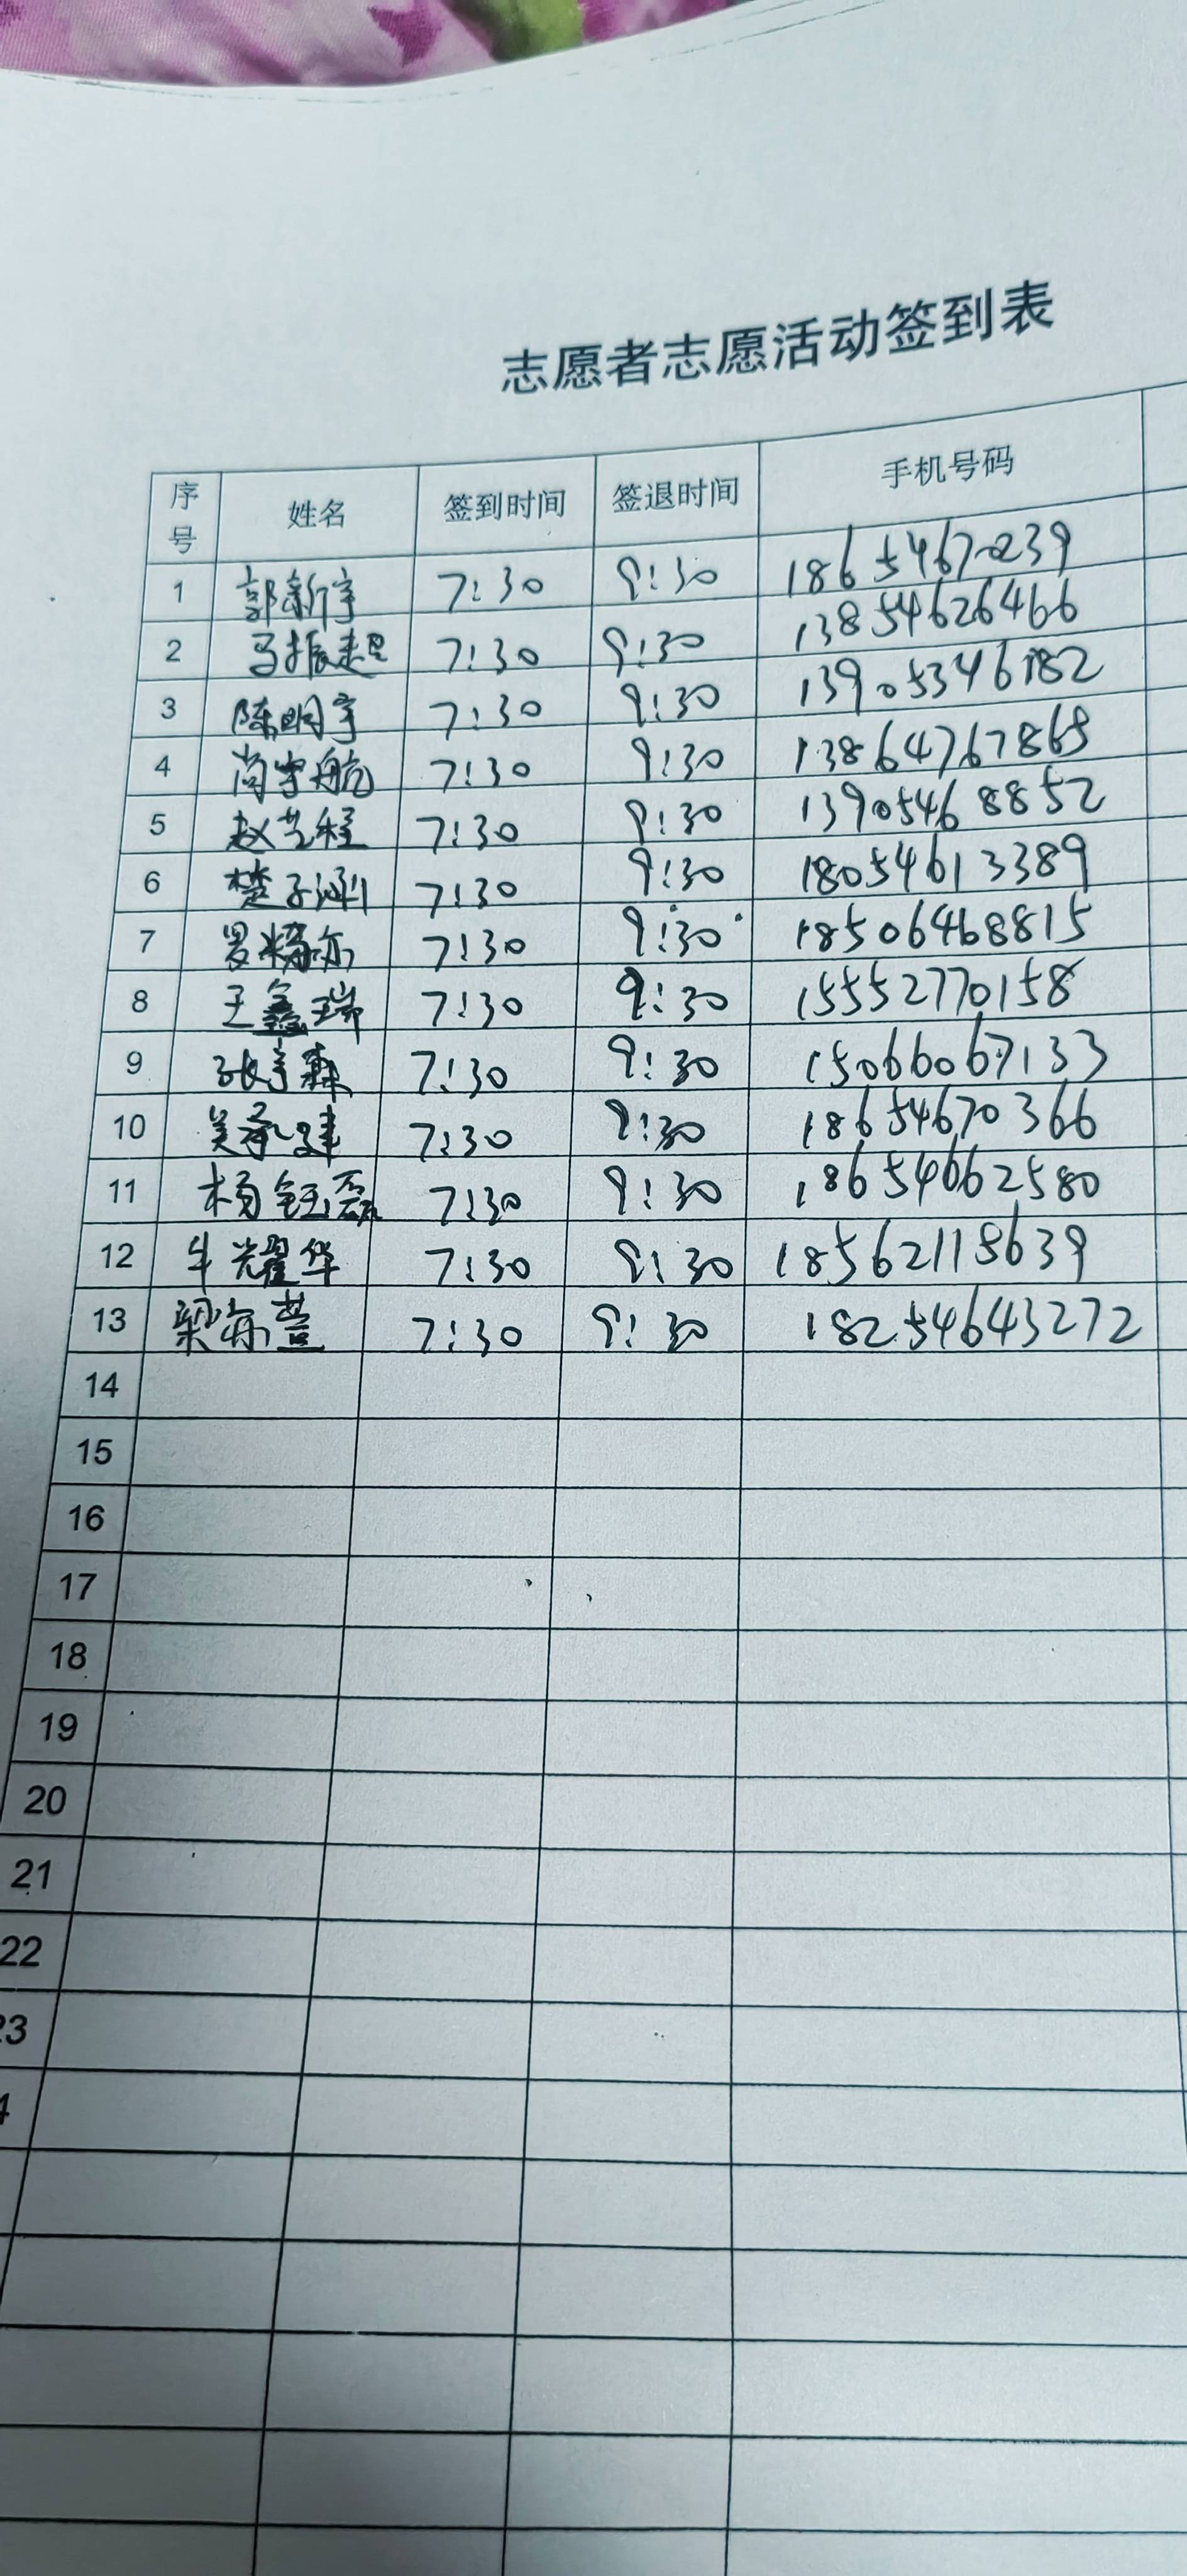 志愿者志愿活动签到表
序号 姓名 签到时间 签退时间 手机号码
1 郭新宇 7:30 9:30 18654670239
2 马振超 7:30 9:30 13854626466
3 陈明宇 7:30 9:30 13905346182
4 尚宇航 7:30 9:30 13864767865
5 赵艺程 7:30 9:30 13905468852
6 楚子涵 7:30 9:30 18054613389
7 罗 7:30 9:30 18506468815
8 王鑫瑞 7:30 9:30 15552770158
9 张宇森 7:30 9:30 15066067133
10 吴承建 7:30 9:30 18654670366
11 杨钰磊 7:30 9:30 18654662580
12 牛耀华 7:30 9:30 18562115639
13 梁海萱 7:30 9:30 18254643272
14
15
16
17
18
19
20
21
22
23
4